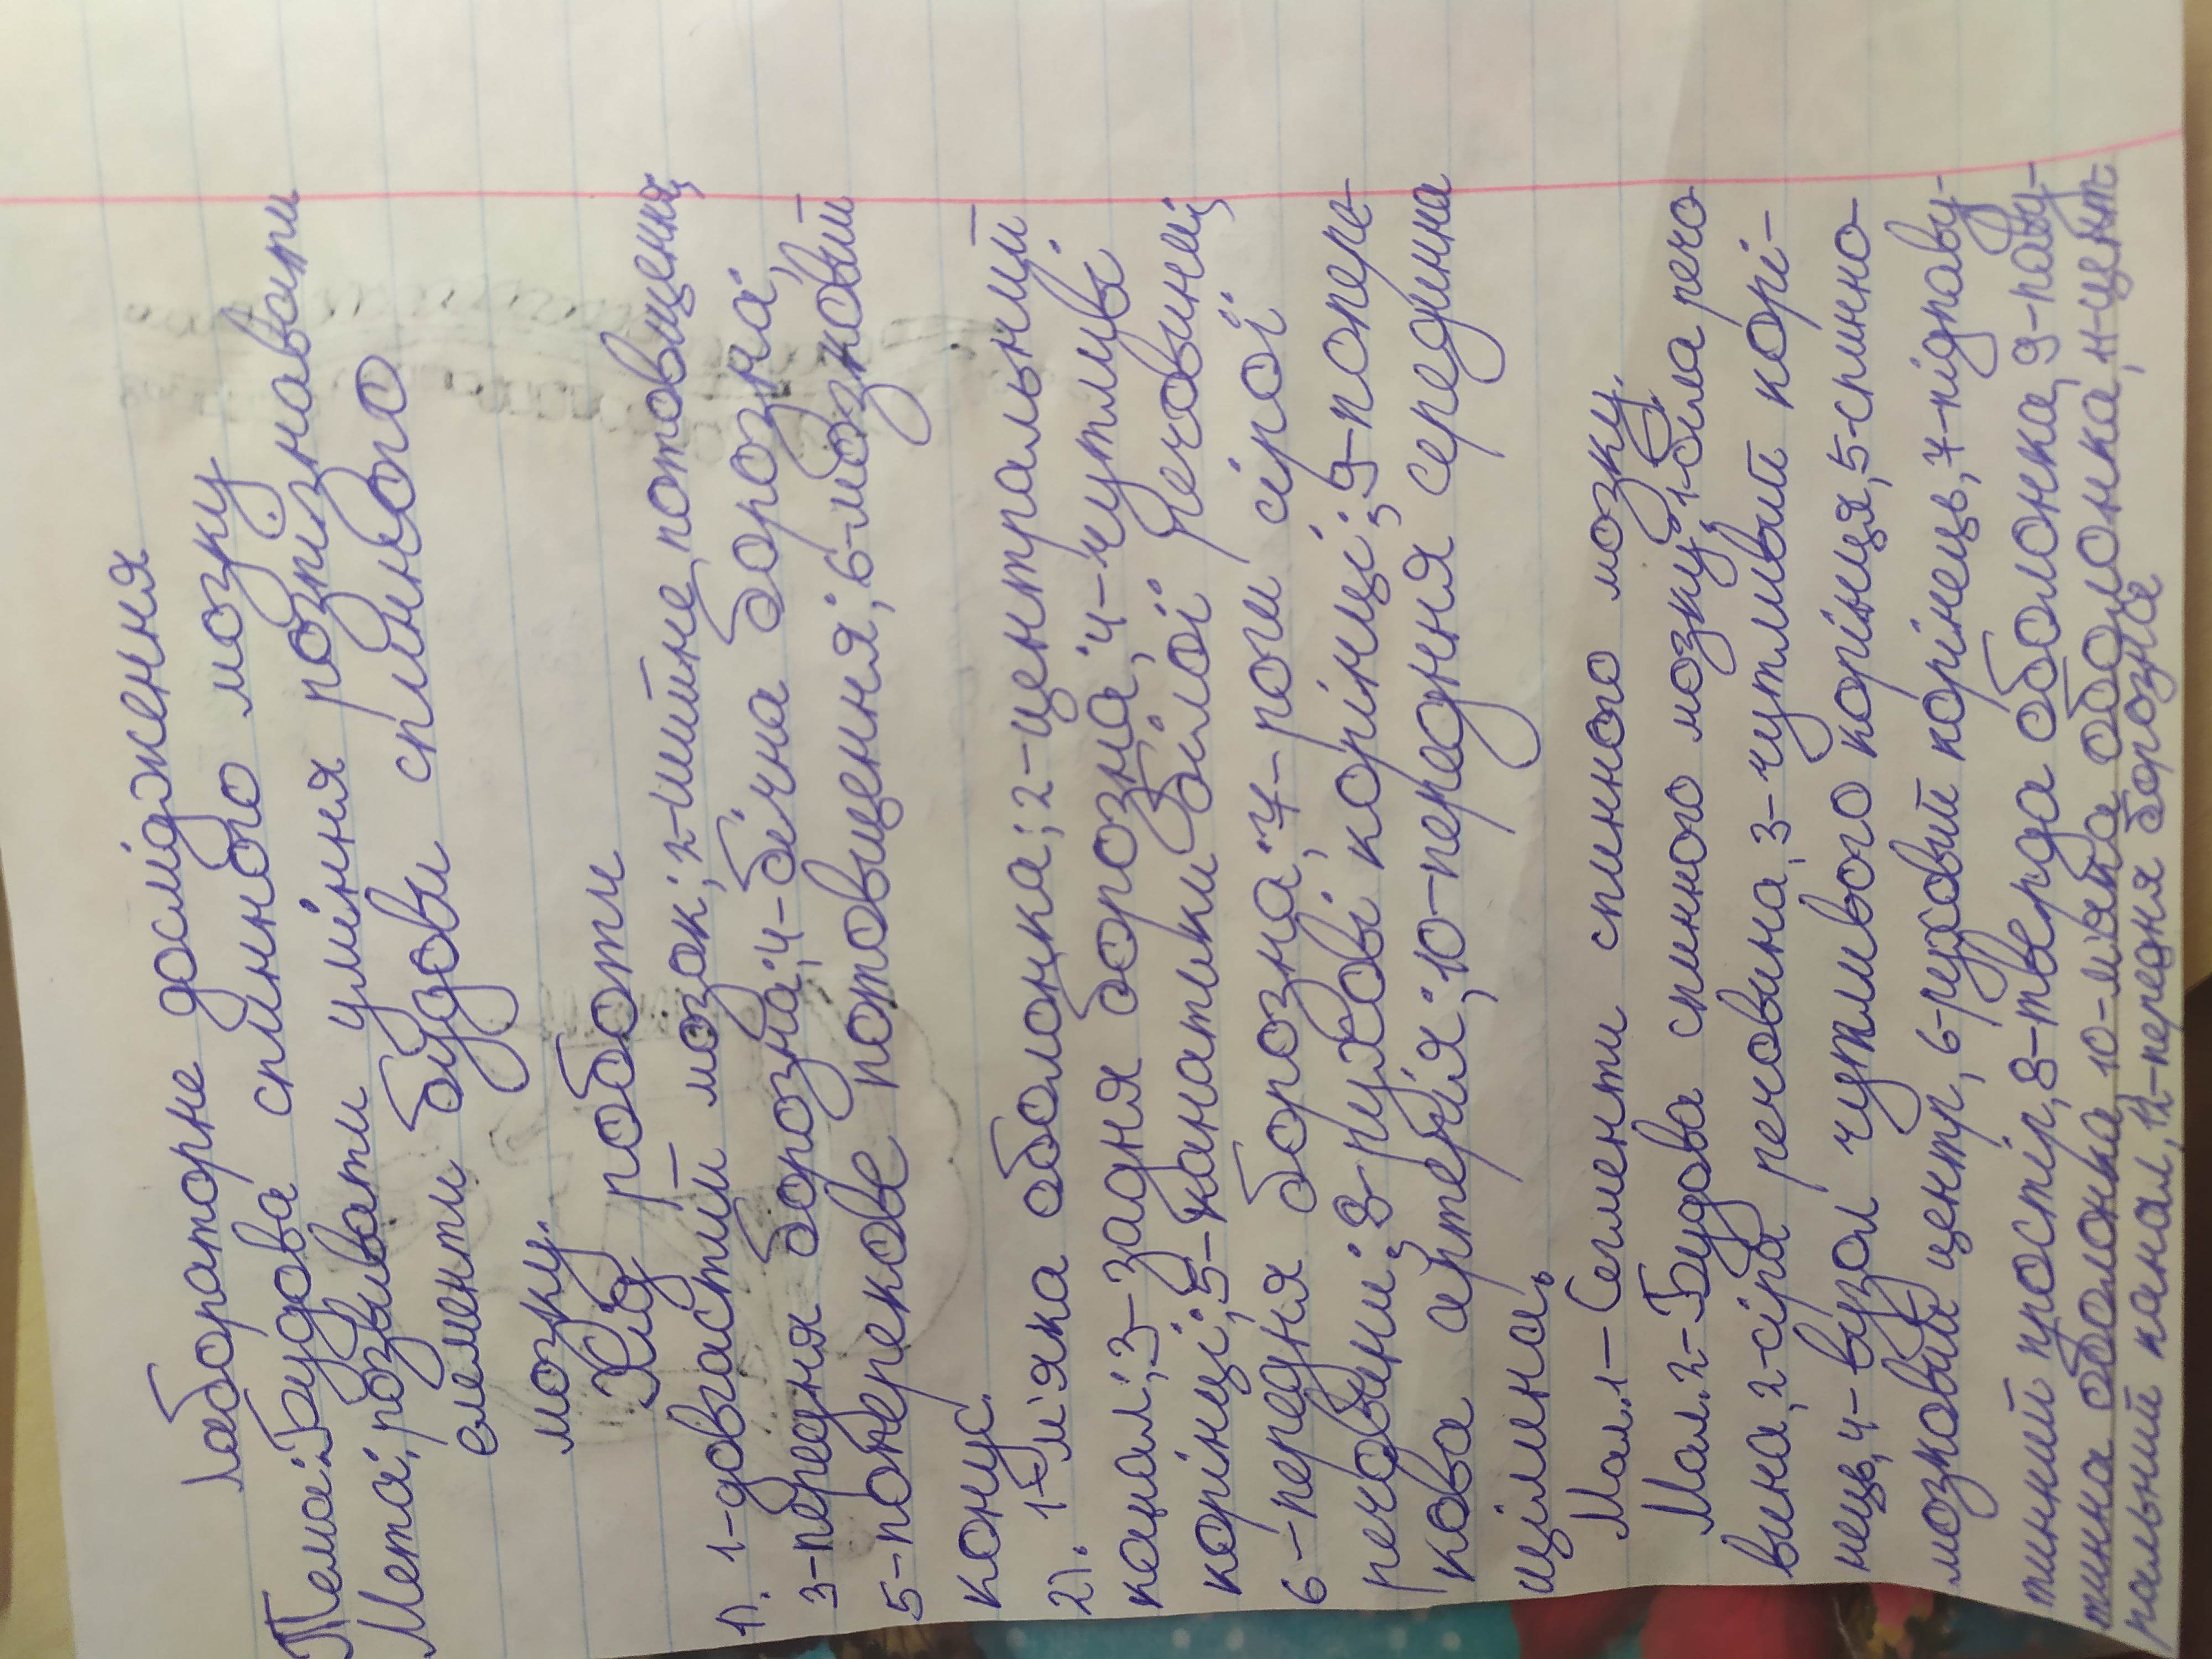 Лабораторне дослідження
Тема: Будова спинного мозку
Мета: розвивати уміння розпізнавати
елементи будови спинного
мозку.
Хід роботи
1). 1-довгастий мозок; 2-шийне потовщення;
3-передня борозна; 4-бічна борозна;
5-поперекове потовщення; 6-мозковий
конус.
2). 1-м'яка оболонка; 2-центральний
канал; 3-задня борозна; 4-чутливі
корінці; 5-канатики білої речовини;
6-передня борозна; 7-роги сірої
речовини; 8-рухові корінці; 9-попере-
кова артерія; 10-передня серединна
щілина.
Мал.1-Сегменти спинного мозку.
Мал.2-Будова спинного мозку: 1-біла речо
вина, 2-сіра речовина, 3-чутливий корі-
нець, 4-вузол чутливого корінця, 5-спинно-
мозковий центр, 6-руховий корінець, 7-підпаву-
тинний простір, 8-тверда оболонка, 9-паву-
тинна оболонка, 10-м'яка оболонка, 11-цент-
ральний канал, 12-передня борозна